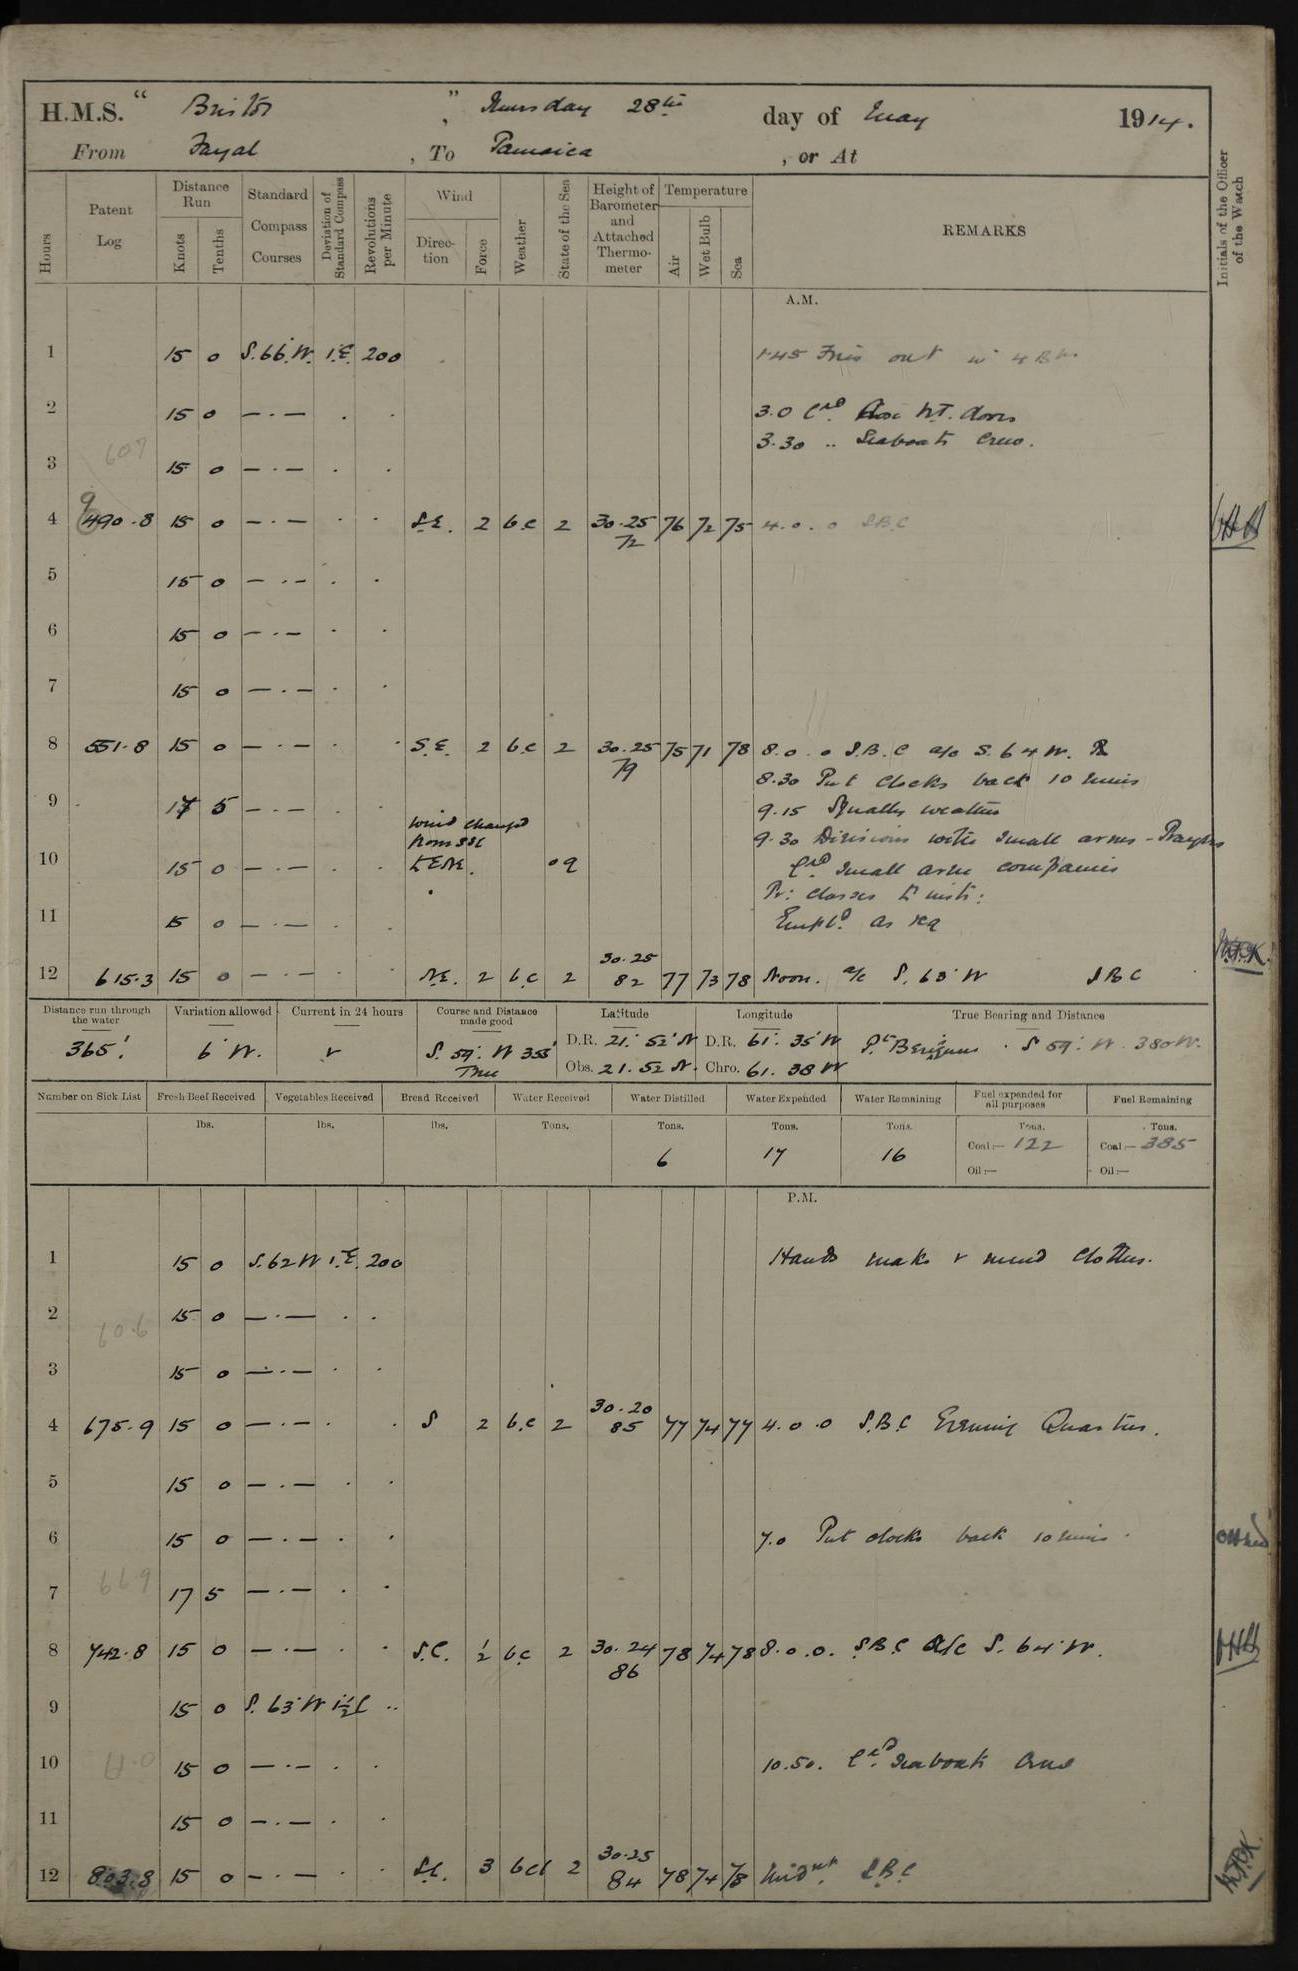 H.M.S. “ Bristol ” , Thursday 28th day of May 1914.
From Fayal , To Jamaica , or At
Hours
Patent Log
Distance Run
Knots
Tenths
Standard Compass Courses
Deviation of Standard Compass
Revolutions per Minute
Wind
Direc-tion
Force
Weather
State of the Sea
Height of Barometer and Attached Thermo-meter
Temperature
Air
Wet Bulb
Sea
REMARKS
Initials of the Officer of the Watch
A.M.
1 15 0 S. 66° W. 1° E. 200 1.45 Fires out in 4 Brs.
2 15 0 — . — . . 3.0 Exd. Close W.T. doors
3.30 .. Seaboats Crew.
607
3 15 0 — . — . .
4 490.8 15 0 — . — . . S.E. 2 b.c 2 30.25 72 76 72 75 4.0.0 S.B.C
5 15 0 — . — . .
6 15 0 — . — . .
7 15 0 — . — . .
8 551.8 15 0 — . — . . S.E. 2 b.c 2 30.25 79 75 71 78 8.0.0 S.B.C a/c S. 64 W.
8.30 Put clocks back 10 mins
9 17 5 — . — . . 9.15 Squally weather
wind changed from SSE
9.30 Divisions with small arms - Prayers
10 15 0 — . — . . to ENE. oq Exd small arm companies
classes to instr:
11 15 0 — . — . . Empld. as req
12 615.3 15 0 — . — . . N.E. 2 b.c 2 30.25 82 77 73 78 Noon. a/c S. 63° W S B C
Distance run through the water
365'
Variation allowed
6° W.
Current in 24 hours
Course and Distance made good
S. 59° W 355' True
Latitude
D.R. 21° 52' N
Obs. 21. 52 N.
Longitude
D.R. 61° 35' W
Chro. 61. 38 W
True Bearing and Distance
S 59° W. 380
Number on Sick List
Fresh Beef Received
lbs.
Vegetables Received
lbs.
Bread Received
lbs.
Water Received
Tons.
Water Distilled
Tons.
6
Water Expended
Tons.
17
Water Remaining
Tons.
16
Fuel expended for all purposes
Tons.
Coal:— 122
Oil:—
Fuel Remaining
Tons.
Coal:— 385
Oil:—
P.M.
1 15 0 S. 62 W 1° E. 200 Hands make & mend clothes.
2 15 0 — . — . .
60.6
3 15 0 — . — . .
4 675.9 15 0 — . — . . S 2 b.c 2 30.20 85 77 74 77 4.0.0 S.B.C Evening Quarters.
5 15 0 — . — . .
6 15 0 — . — . . 7.0 Put clocks back 10 mins.
669
7 17 5 — . — . .
8 742.8 15 0 — . — . . S.E. 1/2 b.c 2 30.24 86 78 74 78 8.0.0. S.B.C a/c S. 64° W.
9 15 0 S. 63° W 1½ E ..
10 15 0 — . — . . 10.50. Exd. Seaboats Crew
61.0
11 15 0 — . — . .
12 803.8 15 0 — . — . . S.E. 3 bc 2 30.25 84 78 74 78 Midnt. S.B.C